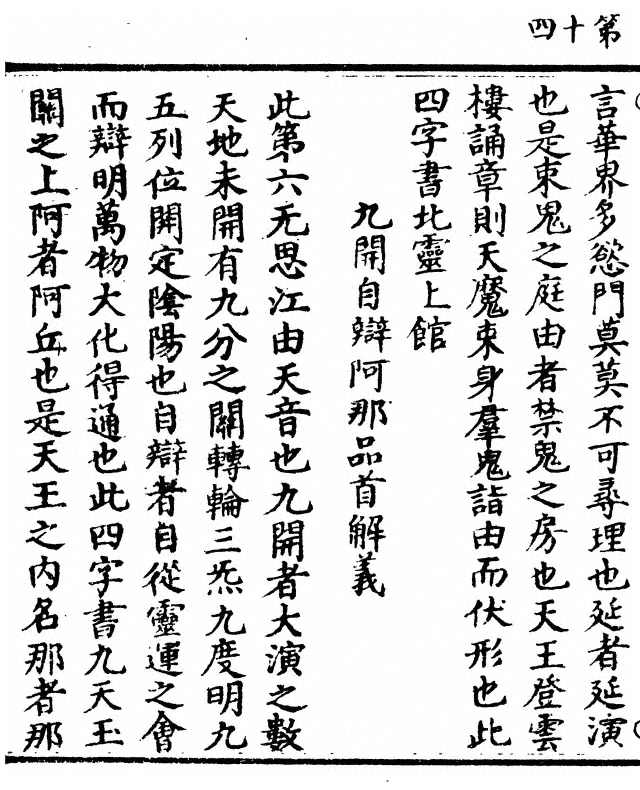 第十四
言華界多慾門莫莫不可尋理也延者延演
也是束鬼之庭由者禁鬼之房也天王登雲
樓誦章則天魔束身群鬼詣由而伏形也此
四字書北靈上館
九開自辯阿那品首解義
此第六无思江由天音也九開者大演之數
天地未開有九分之關轉輪三炁九度明九
五列位開定陰陽也自辯者自從靈運之會
而辯明萬物大化得通也此四字書九天玉
關之上阿者阿丘也是天王之内名那者那